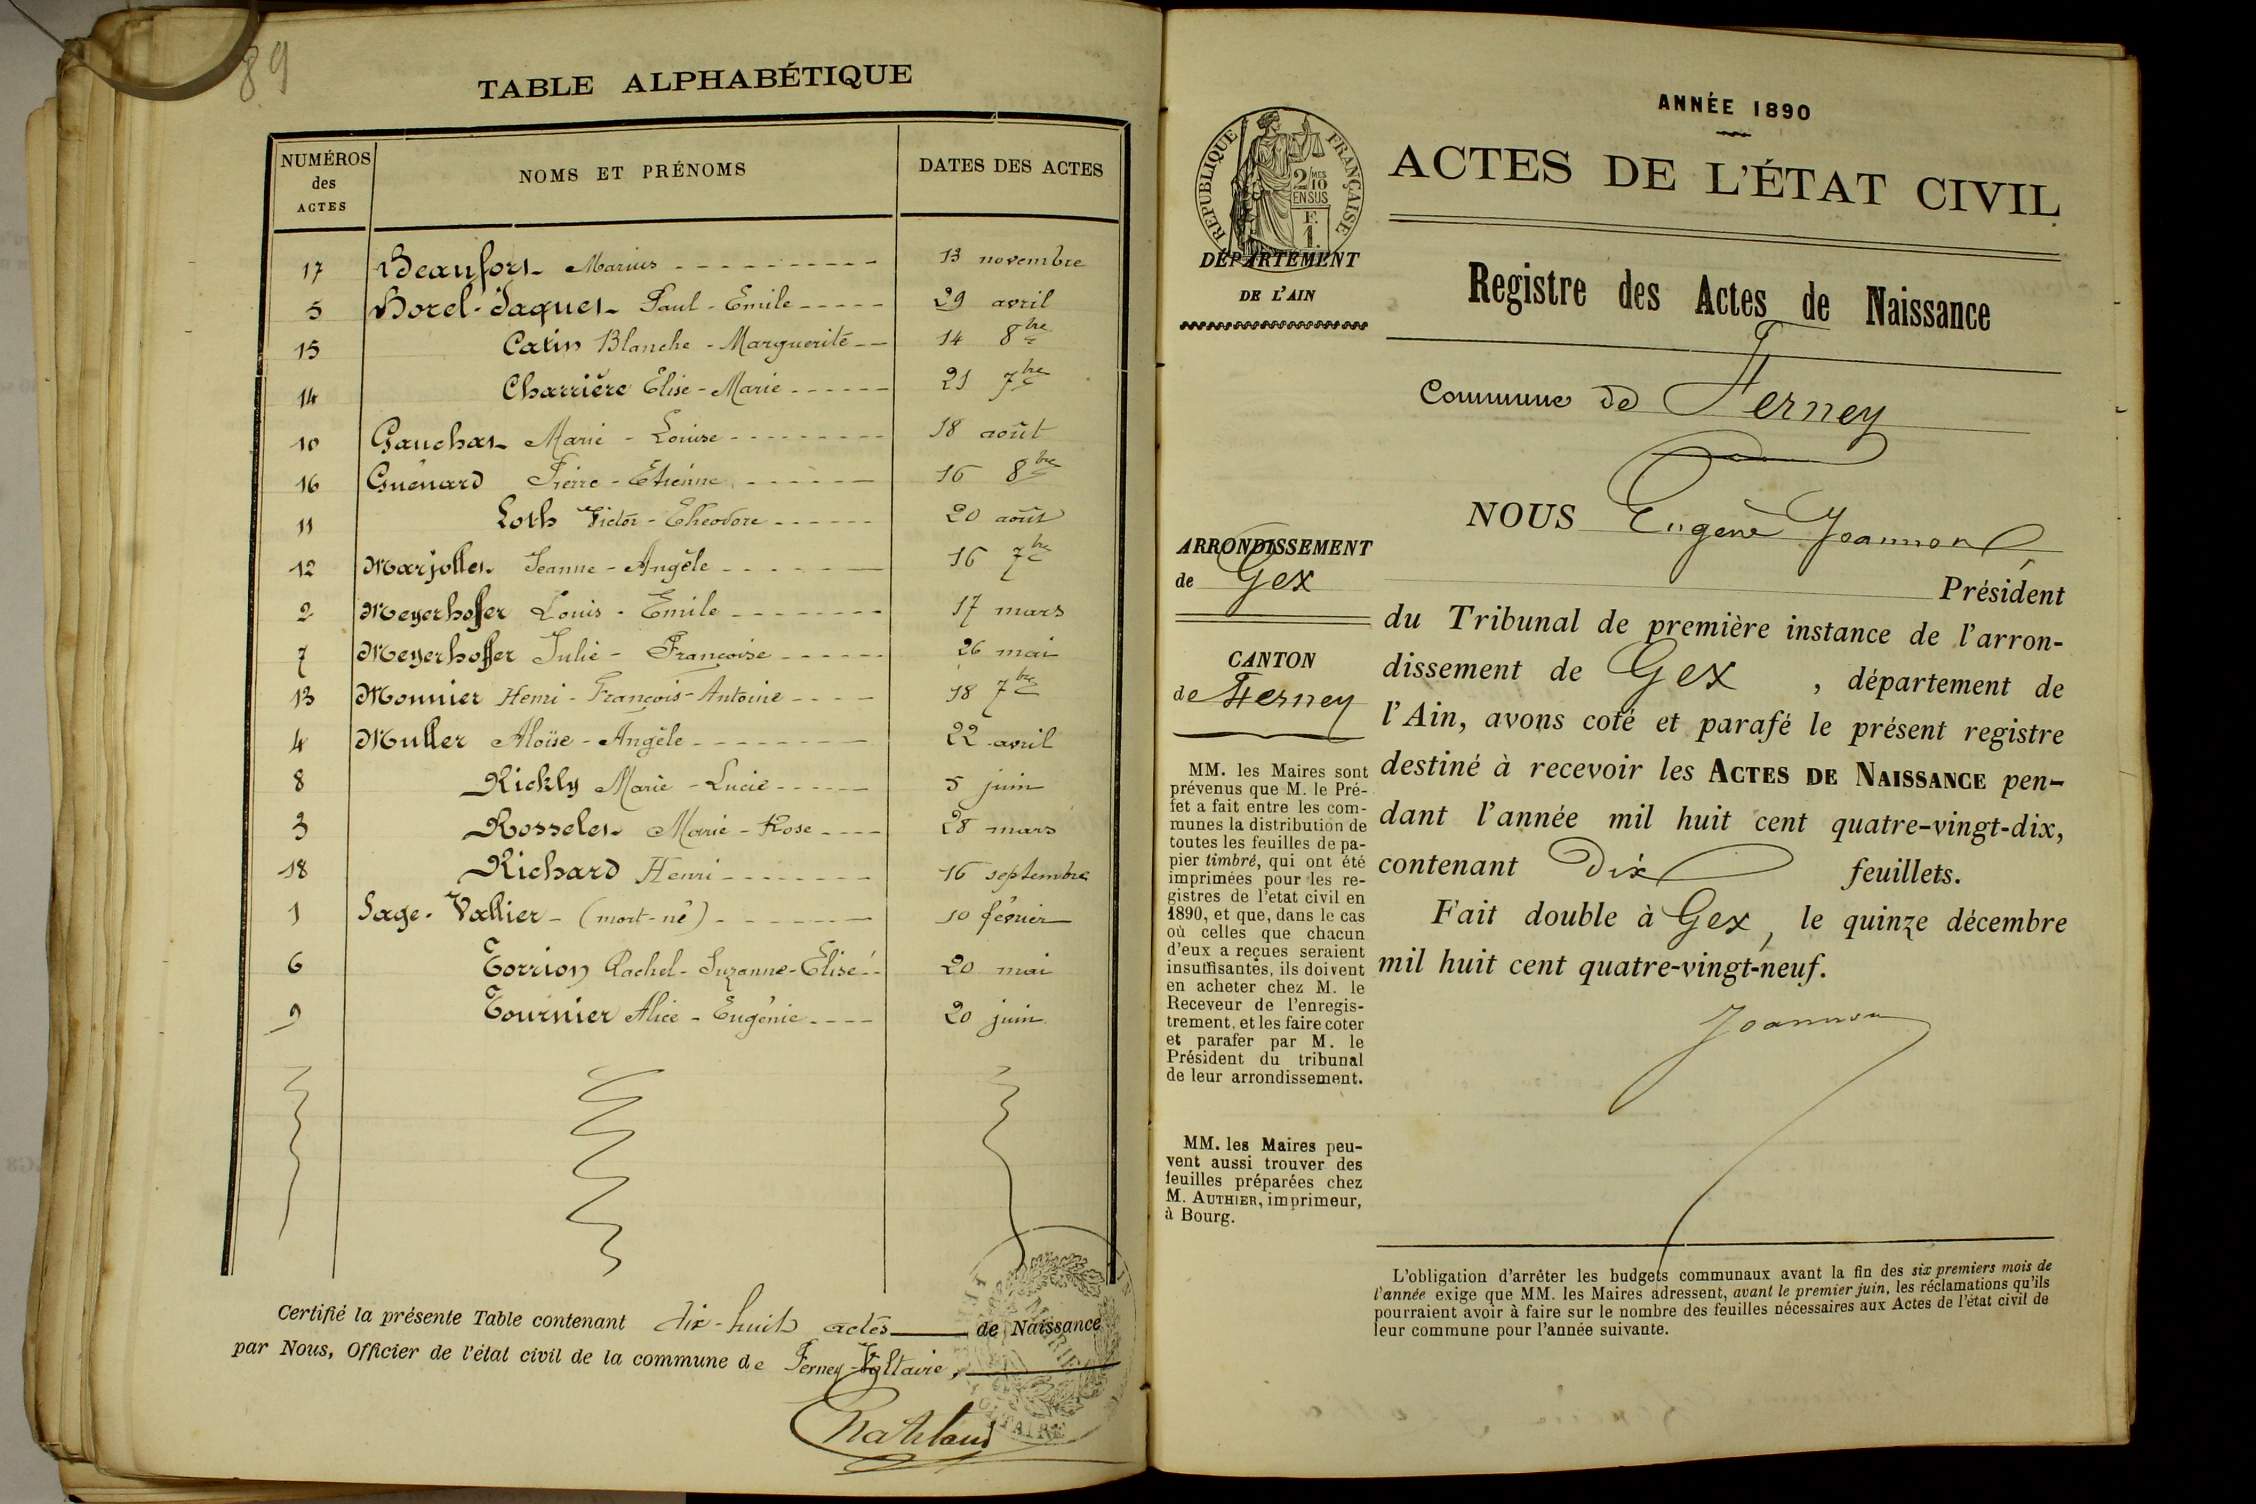 89
TABLE ALPHABÉTIQUE
NUMÉROS des ACTES NOMS ET PRÉNOMS DATES DES ACTES
17 Beaufort Marius 13 novembre
5 Borel-Jaquet Paul-Emile 29 avril
15 Catin Blanche-Marguerite 14 8bre
14 Charrière Elise-Marie 21 7bre
10 Gauchat Marie-Louise 18 août
16 Guénard Pierre-Etienne 16 8bre
11 Loth Victor-Théodore 20 août
12 Marjollet Jeanne-Angèle 16 7bre
2 Meyerhoffer Louis-Emile 17 mars
7 Meyerhoffer Julie-Françoise 26 mai
13 Monnier Henri-François-Antoine 18 7bre
4 Muller Aloïse-Angèle 22 avril
8 Rickly Marie-Lucie 5 juin
3 Rosselet Marie-Rose 28 mars
18 Richard Henri 16 septembre
1 Sage-Vallier (mort-né) 10 février
6 Torrion Rachel-Suzanne-Elise 20 mai
9 Tournier Alice-Eugénie 20 juin
Certifié la présente Table contenant dix-huit actes de Naissance
par Nous, Officier de l'état civil de la commune de Ferney-Voltaire,
MAIRIE
ANNÉE 1890
ACTES DE L'ÉTAT CIVIL
RÉPUBLIQUE FRANÇAISE
2/10 MES
EN SUS
F.
1.
DÉPARTEMENT
DE L'AIN
Registre des Actes de Naissance
Commune de Ferney
NOUS Eugène Joannon
Président
du Tribunal de première instance de l'arron-
dissement de Gex, département de
l'Ain, avons coté et parafé le présent registre
destiné à recevoir les ACTES DE NAISSANCE pen-
dant l'année mil huit cent quatre-vingt-dix,
contenant Dix feuillets.
Fait double à Gex, le quinze décembre
mil huit cent quatre-vingt-neuf.
Joannon
ARRONDISSEMENT
de Gex
CANTON
de Ferney
MM. les Maires sont
prévenus que M. le Pré-
fet a fait entre les com-
munes la distribution de
toutes les feuilles de pa-
pier timbré, qui ont été
imprimées pour les re-
gistres de l'etat civil en
1890, et que, dans le cas
où celles que chacun
d'eux a reçues seraient
insuffisantes, ils doivent
en acheter chez M. le
Receveur de l'enregis-
trement, et les faire coter
et parafer par M. le
Président du tribunal
de leur arrondissement.
MM. les Maires peu-
vent aussi trouver des
feuilles préparées chez
M. AUTHIER, imprimeur,
à Bourg.
L'obligation d'arrêter les budgets communaux avant la fin des six premiers mois de
l'année exige que MM. les Maires adressent, avant le premier juin, les réclamations qu'ils
pourraient avoir à faire sur le nombre des feuilles nécessaires aux Actes de l'état civil de
leur commune pour l'année suivante.